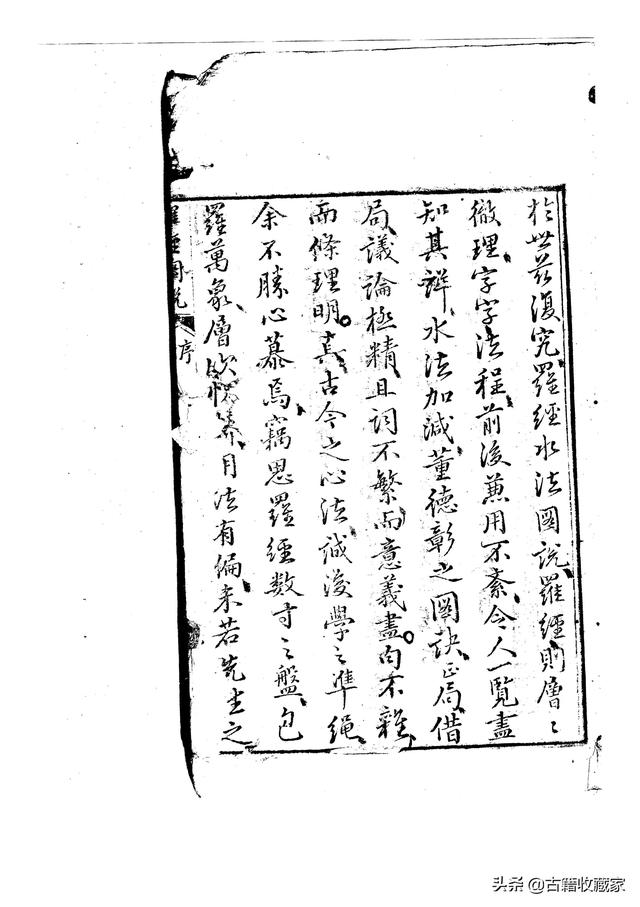 於世茲復究羅經水法圖說羅經則層〻
徹理字字法程前後兼用不紊令人一覽盡
知其詳水法加減董德彰之圖訣正局借
局議論極精且詞不繁而意義盡句不雜
而條理明真古今之心法誠後學之準繩
余不勝心慕焉竊思羅經數寸之盤包
羅萬象層次 用法有偏未若先生之
羅經圖說
序
头条 @古籍收藏家